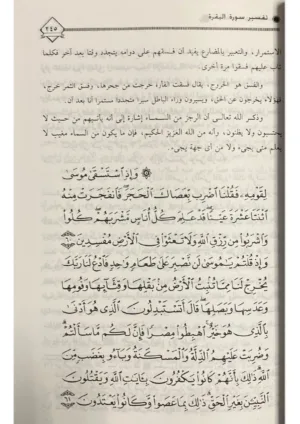 تفسير سورة البقرة
٢٤٥
الاستمرار، والتعبير بالمضارع يفيد أن فسقهم على دوامه يتجدد وقتا بعد آخر فكلما
تاب عليهم فسقوا مرة أخرى.
والفسق هو الخروج، يقال فسقت الفارة خرجت من جحرها، وفسق الثمر خرج،
فهؤلاء يخرجون عن الحق، ويسيرون وراء الباطل سيرا متجددا مستمرا آنا بعد آن.
وذكر الله تعالى أن الرجز من السماء، إشارة إلى أنه يأتيهم من حيث لا
يحتسبون ولا يظنون، وأنه من الله العزيز الحكيم، فإن ما يكون من السماء مغيب لا
يعلم متى يجيء ولا من أي جهة يجيء.
وَإِذِ ٱسْتَسْقَىٰ مُوسَىٰ
لِقَوْمِهِۦ فَقُلْنَا ٱضْرِب بِّعَصَاكَ ٱلْحَجَرَ فَٱنفَجَرَتْ مِنْهُ
ٱثْنَتَا عَشْرَةَ عَيْنًا قَدْ عَلِمَ كُلُّ أُنَاسٍ مَّشْرَبَهُمْ كُلُوا۟
وَٱشْرَبُوا۟ مِن رِّزْقِ ٱللَّهِ وَلَا تَعْثَوْا۟ فِى ٱلْأَرْضِ مُفْسِدِينَ ٦٠
وَإِذْ قُلْتُمْ يَٰمُوسَىٰ لَن نَّصْبِرَ عَلَىٰ طَعَامٍ وَٰحِدٍ فَٱدْعُ لَنَا رَبَّكَ
يُخْرِجْ لَنَا مِمَّا تُنۢبِتُ ٱلْأَرْضُ مِنۢ بَقْلِهَا وَقِثَّآئِهَا وَفُومِهَا
وَعَدَسِهَا وَبَصَلِهَا قَالَ أَتَسْتَبْدِلُونَ ٱلَّذِى هُوَ أَدْنَىٰ
بِٱلَّذِى هُوَ خَيْرٌ ٱهْبِطُوا۟ مِصْرًا فَإِنَّ لَكُم مَّا سَأَلْتُمْ
وَضُرِبَتْ عَلَيْهِمُ ٱلذِّلَّةُ وَٱلْمَسْكَنَةُ وَبَآءُو بِغَضَبٍ مِّنَ
ٱللَّهِ ذَٰلِكَ بِأَنَّهُمْ كَانُوا۟ يَكْفُرُونَ بِـَٔايَٰتِ ٱللَّهِ وَيَقْتُلُونَ
ٱلنَّبِيِّـۧنَ بِغَيْرِ ٱلْحَقِّ ذَٰلِكَ بِمَا عَصَوا۟ وَّكَانُوا۟ يَعْتَدُونَ ٦١